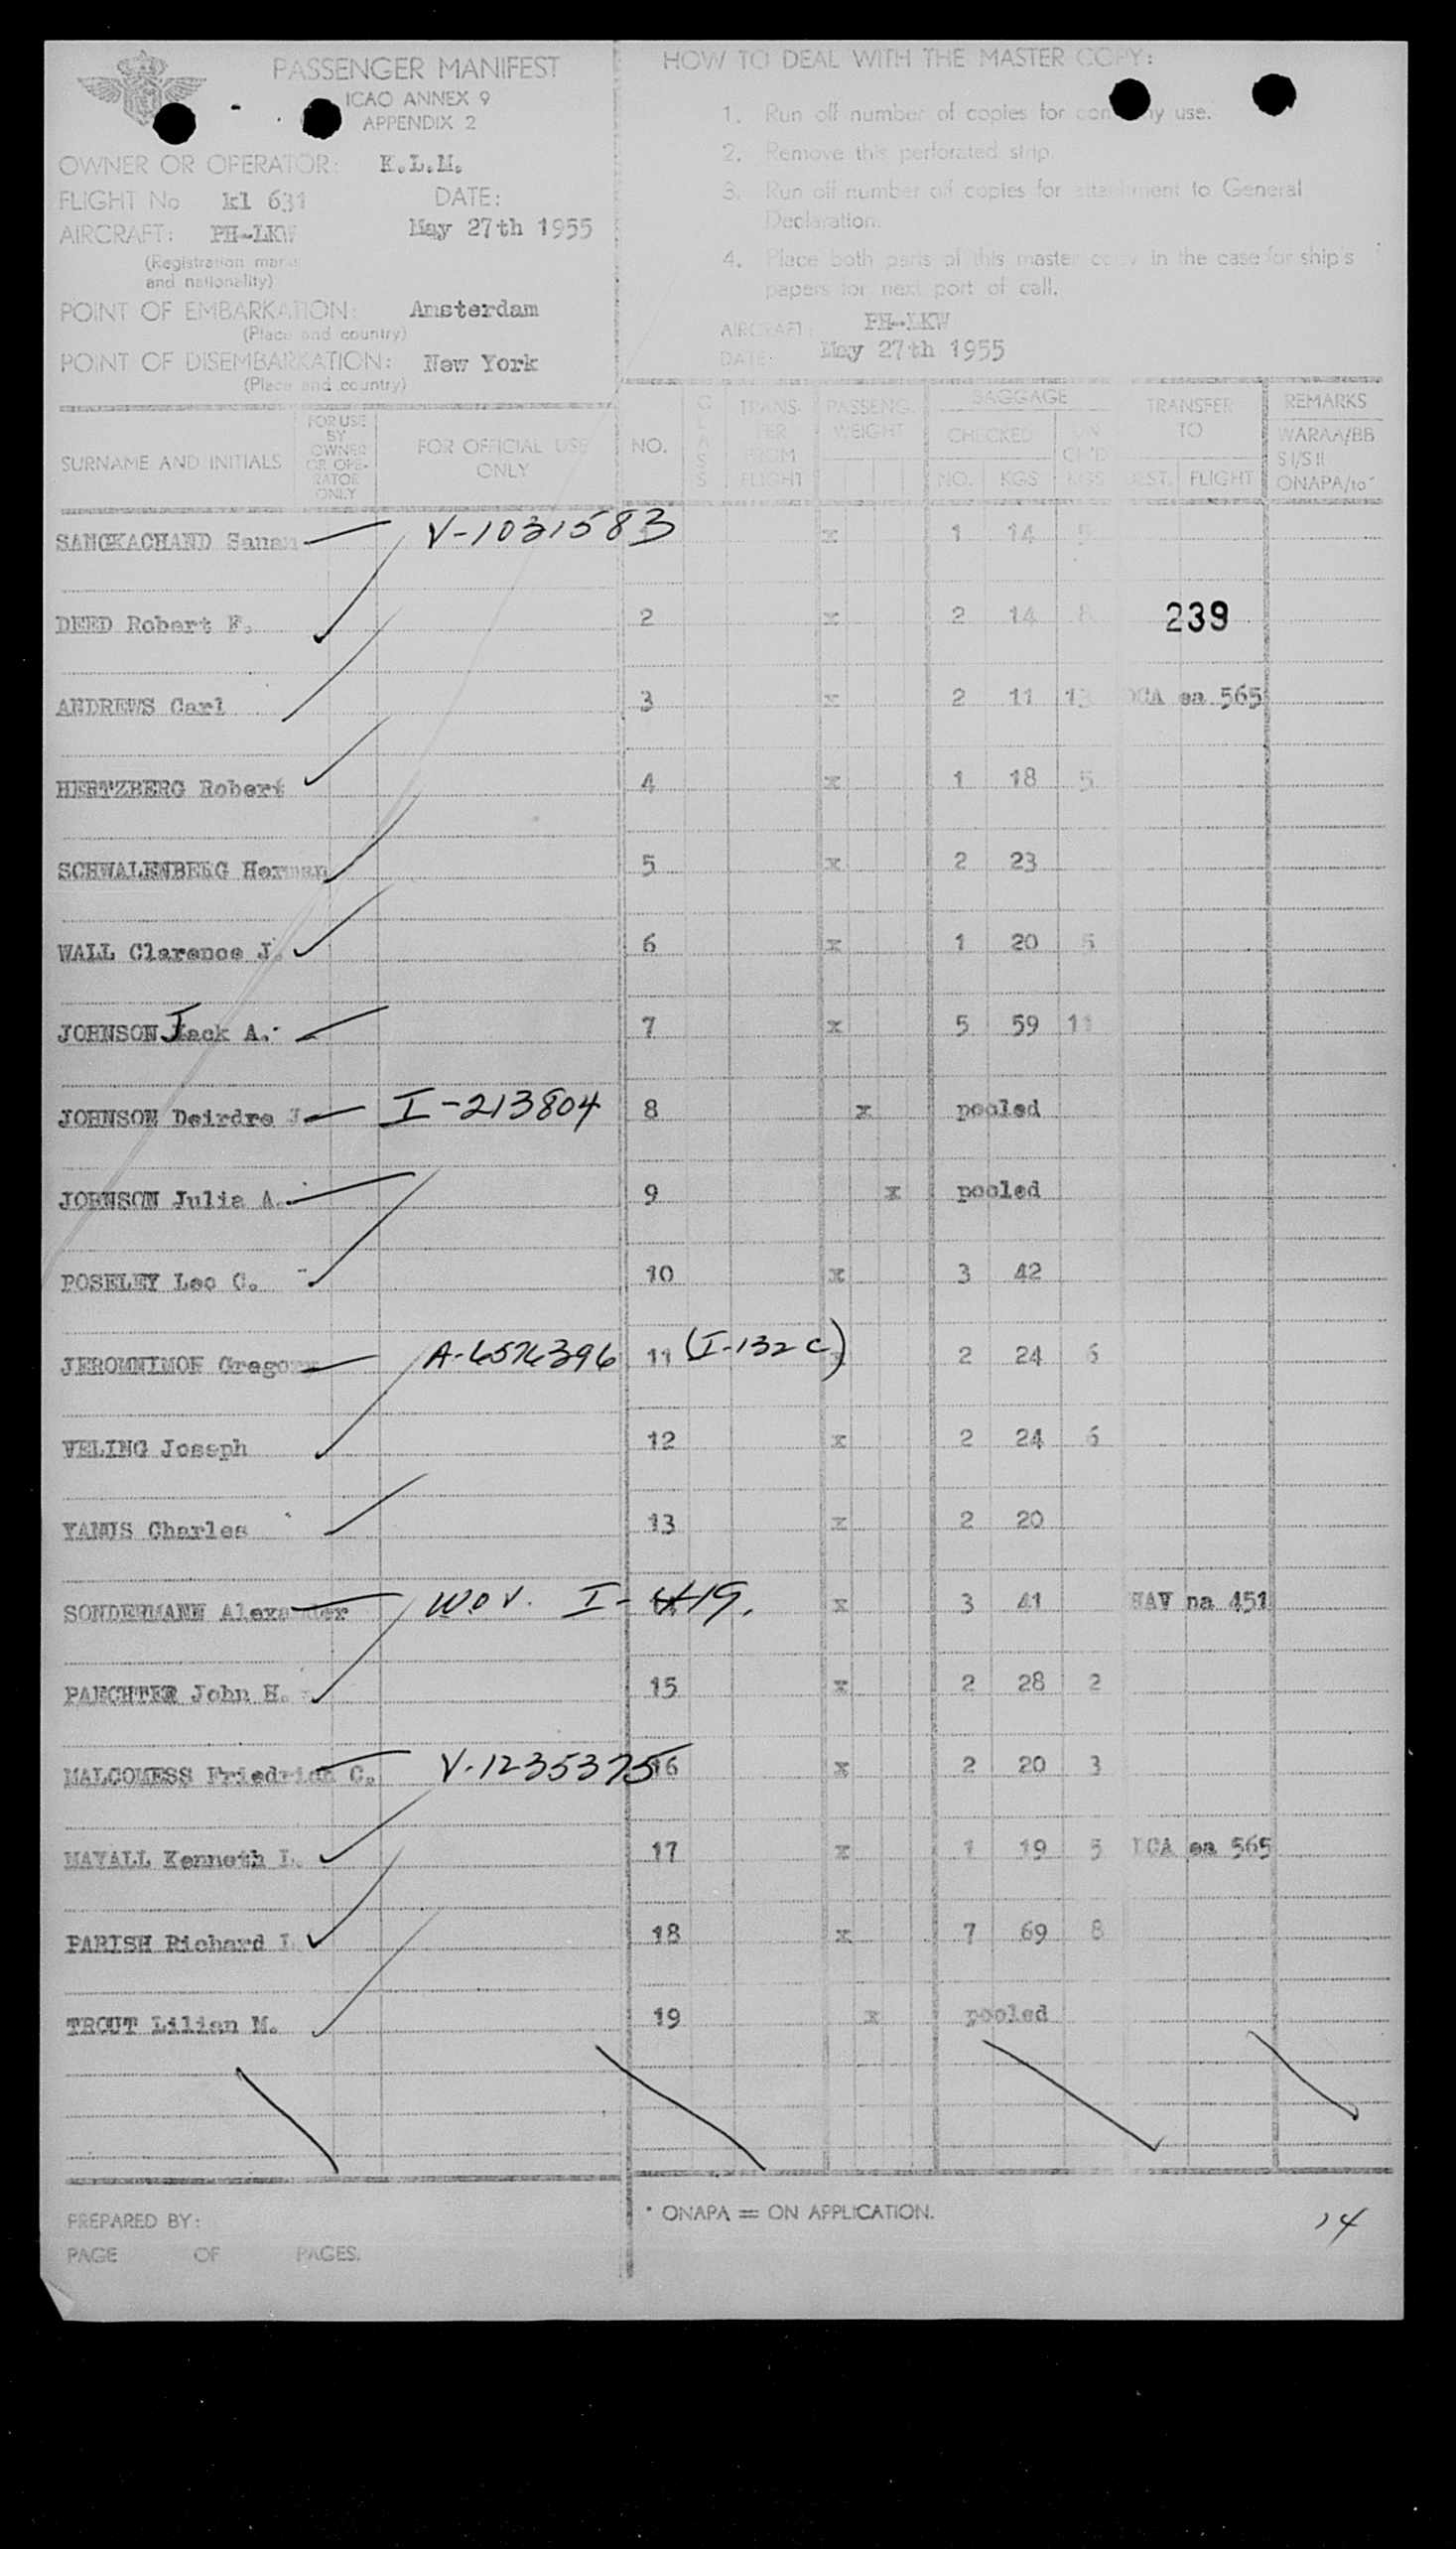 PASSENGER MANIFEST
ICAO ANNEX 9
APPENDIX 2
OWNER OR OPERATOR: K.L.M.
FLIGHT No kl 631 DATE:
AIRCRAFT: PH-LKW May 27th 1955
(Registration marks
and nationality)
POINT OF EMBARKATION: Amsterdam
(Place and country)
POINT OF DISEMBARKATION: New York
(Place and country)
HOW TO DEAL WITH THE MASTER COPY:
1. Run off number of copies for company use.
2. Remove this perforated strip.
3. Run off number off copies for attachment to General
Declaration.
4. Place both parts of this master copy in the case for ship's
papers for next port of call.
AIRCRAFT: PH-LKW
DATE: May 27th 1955
SURNAME AND INITIALS FOR USE BY OWNER OR OPE-RATOR ONLY FOR OFFICIAL USE ONLY NO. CLASS TRANS-FER FROM FLIGHT PASSENG. WEIGHT BAGGAGE CHECKED NO. KGS UN CH'D KGS TRANSFER TO DEST. FLIGHT REMARKS WARAA/BB S I/S II ONAPA/to*
SANGKACHAND Sanan V-1031583 x 1 14 5
DEED Robert F. 2 x 2 14 8 239
ANDREWS Carl 3 x 2 11 13 DCA ea 565
HERTZBERG Robert 4 x 1 18 5
SCHWALENBERG Herman 5 x 2 23
WALL Clarence J. 6 x 1 20 5
JOHNSON Jack A. 7 x 5 59 11
JOHNSON Deirdre J I-213804 8 x pooled
JOHNSON Julia A. 9 x pooled
POSELEY Leo C. 10 x 3 42
JEROMNIMOF Gregory A-6576396 11 (I-132 C) 2 24 6
VELING Joseph 12 x 2 24 6
YANUS Charles 13 x 2 20
SONDERMANN Alexander WOV. I-419. x 3 41 HAV na 451
PAECHTER John H. 15 x 2 28 2
MALCOMESS Friedrich C. V-1235375 16 x 2 20 3
MAYALL Kenneth L. 17 x 1 19 5 DCA ea 565
PARISH Richard L 18 x 7 69 8
TROUT Lilian M. 19 x pooled
PREPARED BY:
PAGE OF PAGES.
* ONAPA = ON APPLICATION.
14